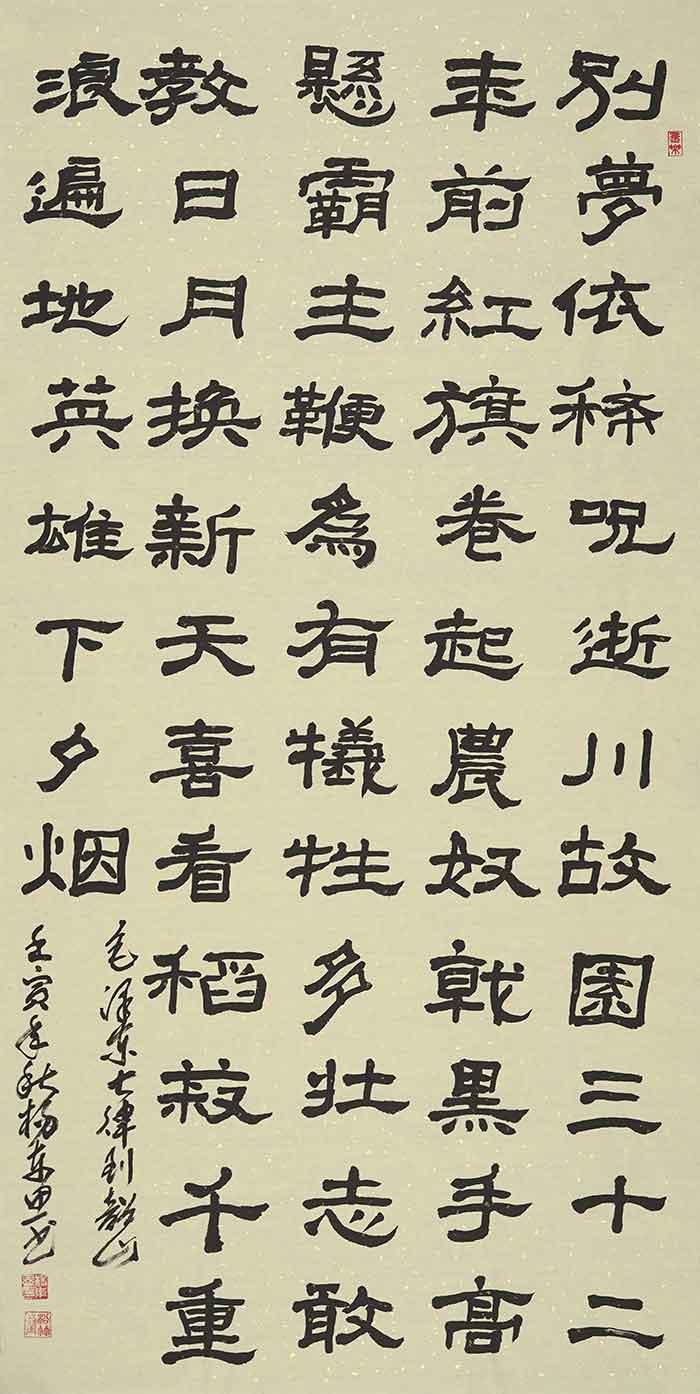 別夢依稀呪逝川故園三十二
年前紅旗卷起農奴戟黑手高
懸霸主鞭為有犧牲多壯志敢
教日月換新天喜看稻菽千重
浪遍地英雄下夕烟
毛泽东七律到韶山
壬寅年秋杨东书